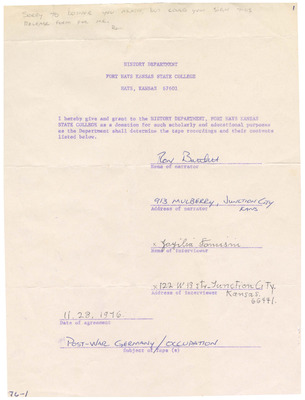 1
SORRY TO BOTHER YOU AGAIN BUT COULD YOU SIGN THIS
RELEASE FORM FOR ME.
HISTORY DEPARTMENT
FORT HAYS KANSAS STATE COLLEGE
HAYS, KANSAS 67601
I hereby give and grant to the HISTORY DEPARTMENT, FORT HAYS KANSAS
STATE COLLEGE as a donation for such scholarly and educational purposes
as the Department shall determine the tape recordings and their contents
listed below.
Roy
Name of narrator
913 MULBERRY, JUNCTION CITY
KANS
Address of narrator
x
Name of interviewer
x 122 W 13 St. Junction City
Kansas
66441.
Address of interviewer
11. 28. 1976
Date of agreement
POST-WAR GERMANY/OCCUPATION
Subject of tape (s)
76-1